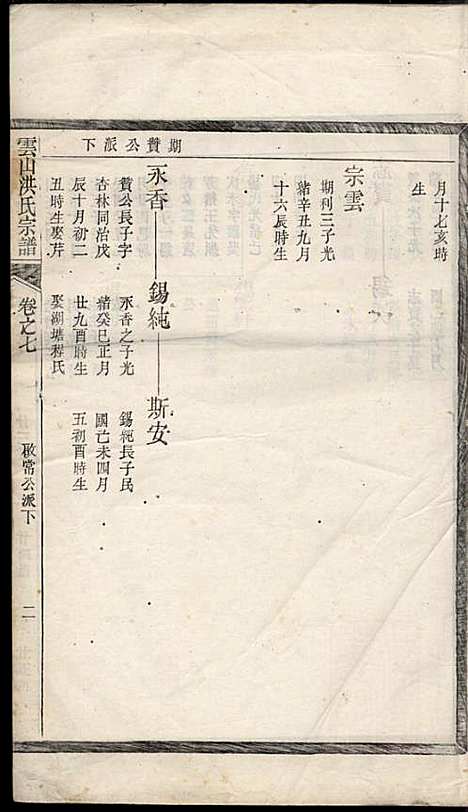 期贊公派下
月十七亥時
生
宗雲
期利三子光
緒辛丑九月
十六辰時生
永香——錫純——斯安
贊公長子字
杏林同治戊
辰十月初二
丑時生娶芹
永香之子光
緒癸巳正月
廿九酉時生
娶湖塘程氏
錫純長子民
國己未四月
五初酉時生
雲山洪氏宗譜
卷之七
啟常公派下
二